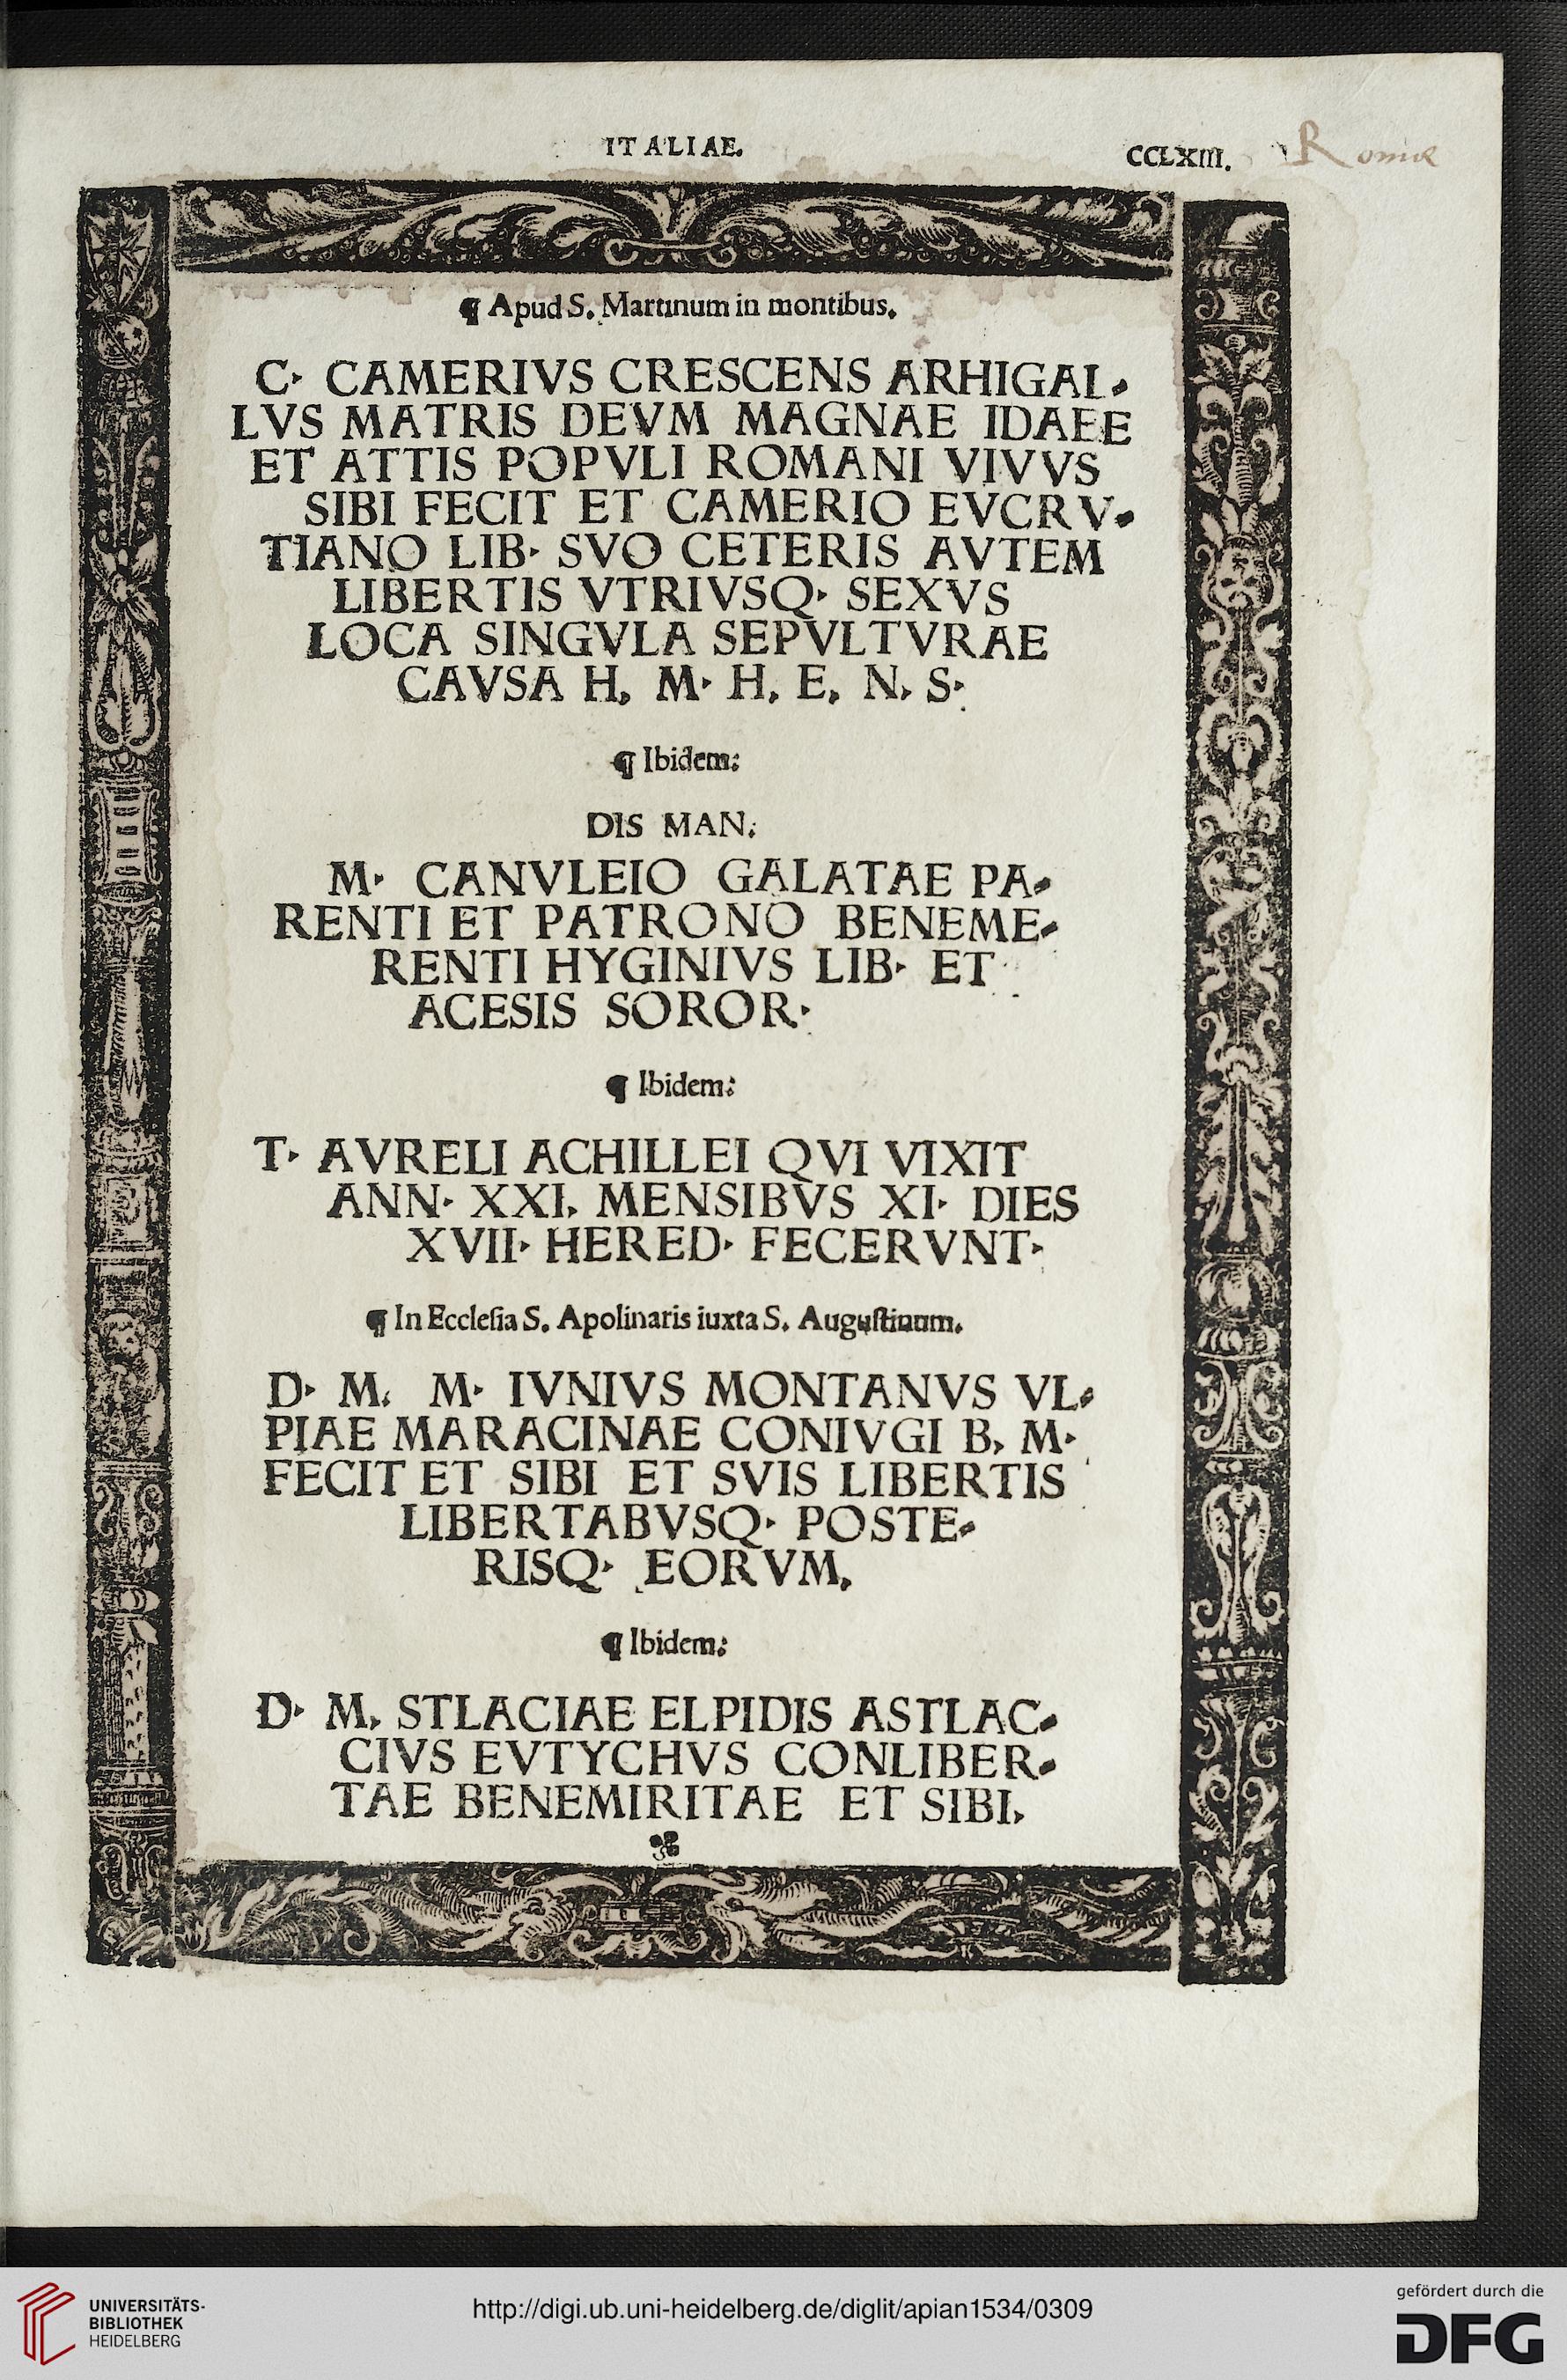 ITALIAE.
CCLXIII.
Romæ
¶ Apud S. Martinum in montibus.
C· CAMERIVS CRESCENS ARHIGAL-
LVS MATRIS DEVM MAGNAE IDAEE
ET ATTIS POPVLI ROMANI VIVVS
SIBI FECIT ET CAMERIO EVCRV-
TIANO LIB· SVO CETERIS AVTEM
LIBERTIS VTRIVSQ· SEXVS
LOCA SINGVLA SEPVLTVRAE
CAVSA H, M· H, E, N, S·
¶ Ibidem:
DIS MAN:
M· CANVLEIO GALATAE PA-
RENTI ET PATRONO BENEME-
RENTI HYGINIVS LIB· ET
ACESIS SOROR·
¶ Ibidem:
T· AVRELI ACHILLEI QVI VIXIT
ANN· XXI, MENSIBVS XI· DIES
XVII· HERED· FECERVNT·
¶ In Ecclesia S. Apolinaris iuxta S. Augustinum.
D· M. M· IVNIVS MONTANVS VL-
PIAE MARACINAE CONIVGI B, M·
FECIT ET SIBI ET SVIS LIBERTIS
LIBERTABVSQ· POSTE-
RISQ· EORVM,
¶ Ibidem:
D· M, STLACIAE ELPIDIS ASTLAC-
CIVS EVTYCHVS CONLIBER-
TAE BENEMIRITAE ET SIBI,
UNIVERSITÄTS-
BIBLIOTHEK
HEIDELBERG
http://digi.ub.uni-heidelberg.de/diglit/apian1534/0309
gefördert durch die
DFG